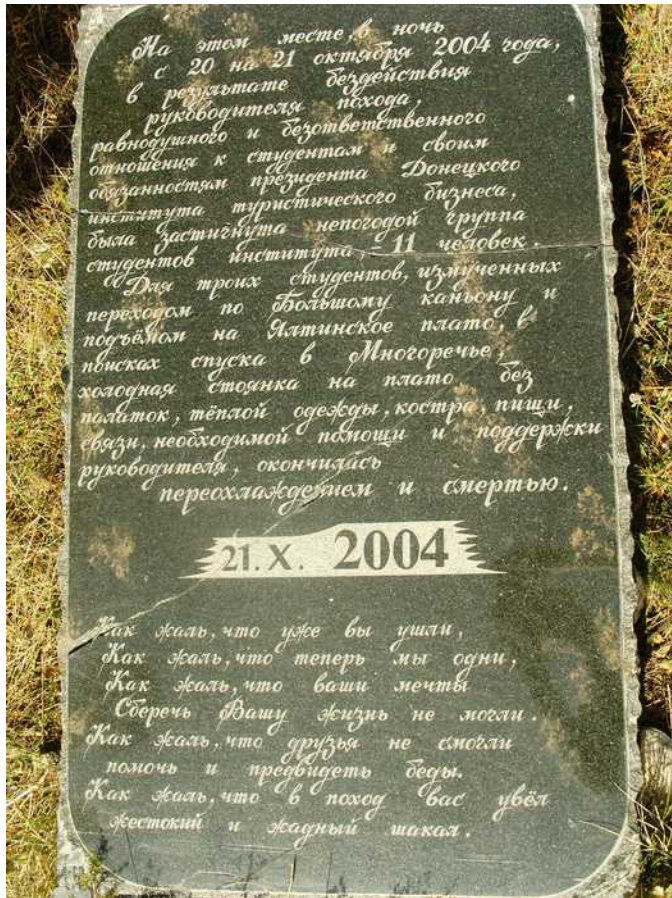 На этом месте, в ночь
с 20 на 21 октября 2004 года,
в результате бездействия
руководителя похода,
равнодушного и безответственного
отношения к студентам и своим
обязанностям президента Донецкого
института туристического бизнеса,
была застигнута непогодой группа
студентов института, 11 человек.
Для троих студентов, измученных
переходом по Большому каньону и
подъёмом на Ялтинское плато, в
поисках спуска в Многоречье,
холодная стоянка на плато без
палаток, тёплой одежды, костра, пищи,
связи, необходимой помощи и поддержки
руководителя, окончилась
переохлаждением и смертью.
21. X. 2004
Как жаль, что уже вы ушли,
Как жаль, что теперь мы одни,
Как жаль, что ваши мечты
Сберечь Вашу жизнь не могли.
Как жаль, что друзья не смогли
помочь и предвидеть беды.
Как жаль, что в поход вас увёл
жестокий и жадный шакал.